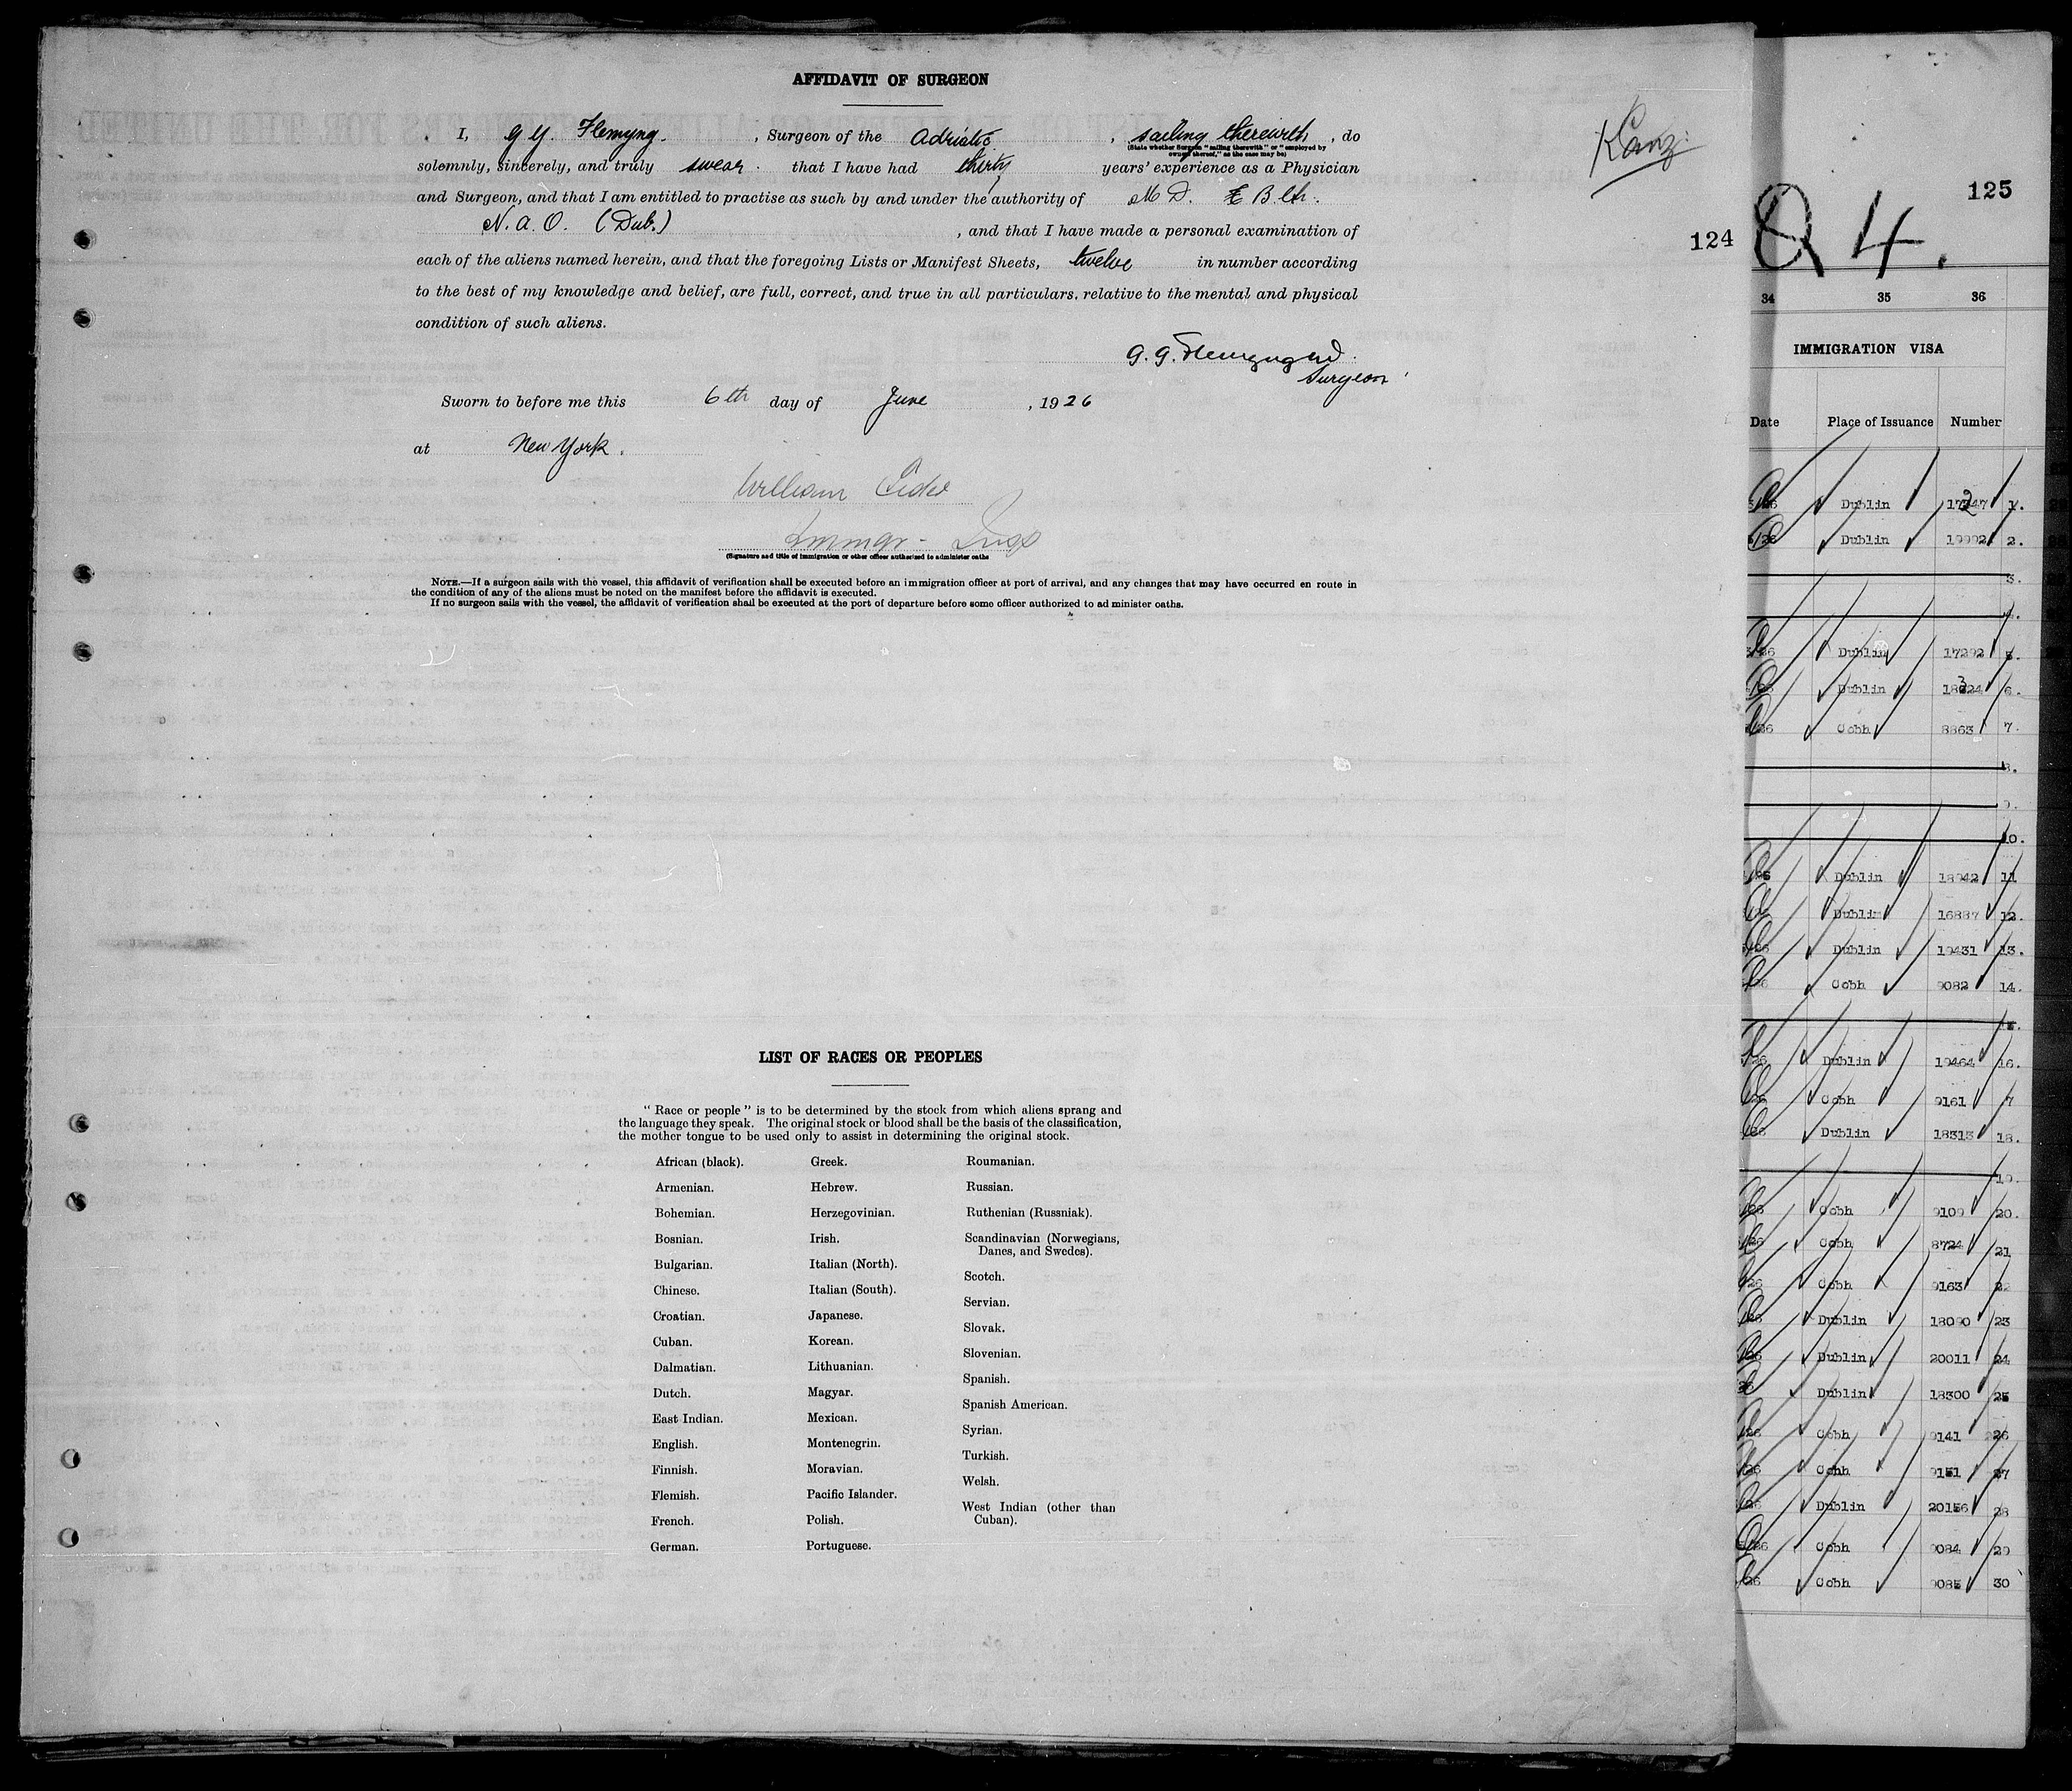 AFFIDAVIT OF SURGEON
I, G G. Flemyng. , Surgeon of the Adriatic , sailing therewith , do
(State whether Surgeon "sailing therewith" or "employed by
owners thereof," as the case may be)
solemnly, sincerely, and truly swear that I have had thirty years' experience as a Physician
and Surgeon, and that I am entitled to practise as such by and under the authority of M D. B. Ch.
N. A. O. (Dub.) , and that I have made a personal examination of
each of the aliens named herein, and that the foregoing Lists or Manifest Sheets, twelve in number according
to the best of my knowledge and belief, are full, correct, and true in all particulars, relative to the mental and physical
condition of such aliens.
G. G. Flemyng
Surgeon
Sworn to before me this 6th day of June , 1926
at New York.
William
Immgr- Insp
(Signature and title of immigration or other officer authorized to administer oaths
NOTE.—If a surgeon sails with the vessel, this affidavit of verification shall be executed before an immigration officer at port of arrival, and any changes that may have occurred en route in
the condition of any of the aliens must be noted on the manifest before the affidavit is executed.
If no surgeon sails with the vessel, the affidavit of verification shall be executed at the port of departure before some officer authorized to ad minister oaths.
124
LIST OF RACES OR PEOPLES
"Race or people" is to be determined by the stock from which aliens sprang and
the language they speak. The original stock or blood shall be the basis of the classification,
the mother tongue to be used only to assist in determining the original stock.
African (black).
Armenian.
Bohemian.
Bosnian.
Bulgarian.
Chinese.
Croatian.
Cuban.
Dalmatian.
Dutch.
East Indian.
English.
Finnish.
Flemish.
French.
German.
Greek.
Hebrew.
Herzegovinian.
Irish.
Italian (North).
Italian (South).
Japanese.
Korean.
Lithuanian.
Magyar.
Mexican.
Montenegrin.
Moravian.
Pacific Islander.
Polish.
Portuguese.
Roumanian.
Russian.
Ruthenian (Russniak).
Scandinavian (Norwegians,
Danes, and Swedes).
Scotch.
Servian.
Slovak.
Slovenian.
Spanish.
Spanish American.
Syrian.
Turkish.
Welsh.
West Indian (other than
Cuban).
125
Q 4.
34 35 36
IMMIGRATION VISA
Date Place of Issuance Number
Dublin 1.
Dublin 19992 2.
3.
4.
Dublin 17292 5.
Dublin 6.
Cobh 8863 7.
8.
9.
10.
Dublin 18942 11
Dublin 16887 12.
Dublin 19431 13.
Cobh 9082 14.
15.
Dublin 19464 16.
Cobh 9161 7
Dublin 18313 18.
19.
Cobh 9109 20.
Cobh 8724 21
Cobh 9163 22
Dublin 18090 23
Dublin 20011 24
Dublin 18300 25
Cobh 9141 26
Cobh 9151 27
Dublin 20156 28
Cobh 9084 29
Cobh 9085 30